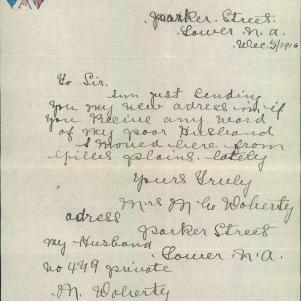 parker Street
Lower N.A.
Dec. 5/1916
To Sir.
Iam just sending
You my new adress in if
you Recive any word
of my poor Husband
I moved here from
Gilles plains. lately
Yours Truly
Mrs M Co Doherty
adress
parker Street
my Husband Lower N.A.
No 449 private
M. Doherty